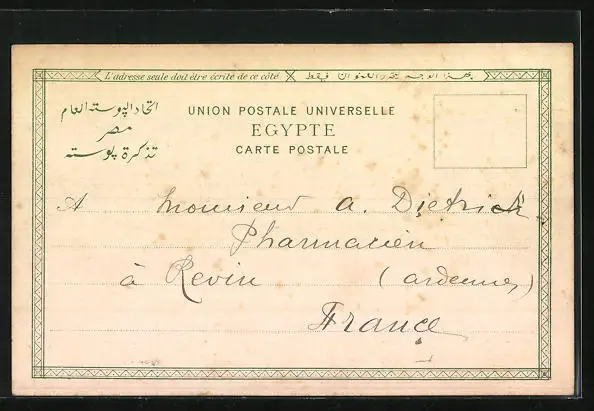 L'adresse seule doit être écrite de ce côté بهذا الوجه يتحرر العنوان فقط
اتحاد البوستة العام
مصر
تذكرة بوسته
UNION POSTALE UNIVERSELLE
EGYPTE
CARTE POSTALE
A Monsieur A. Dietrich
Pharmacien
à Revin (Ardennes)
France